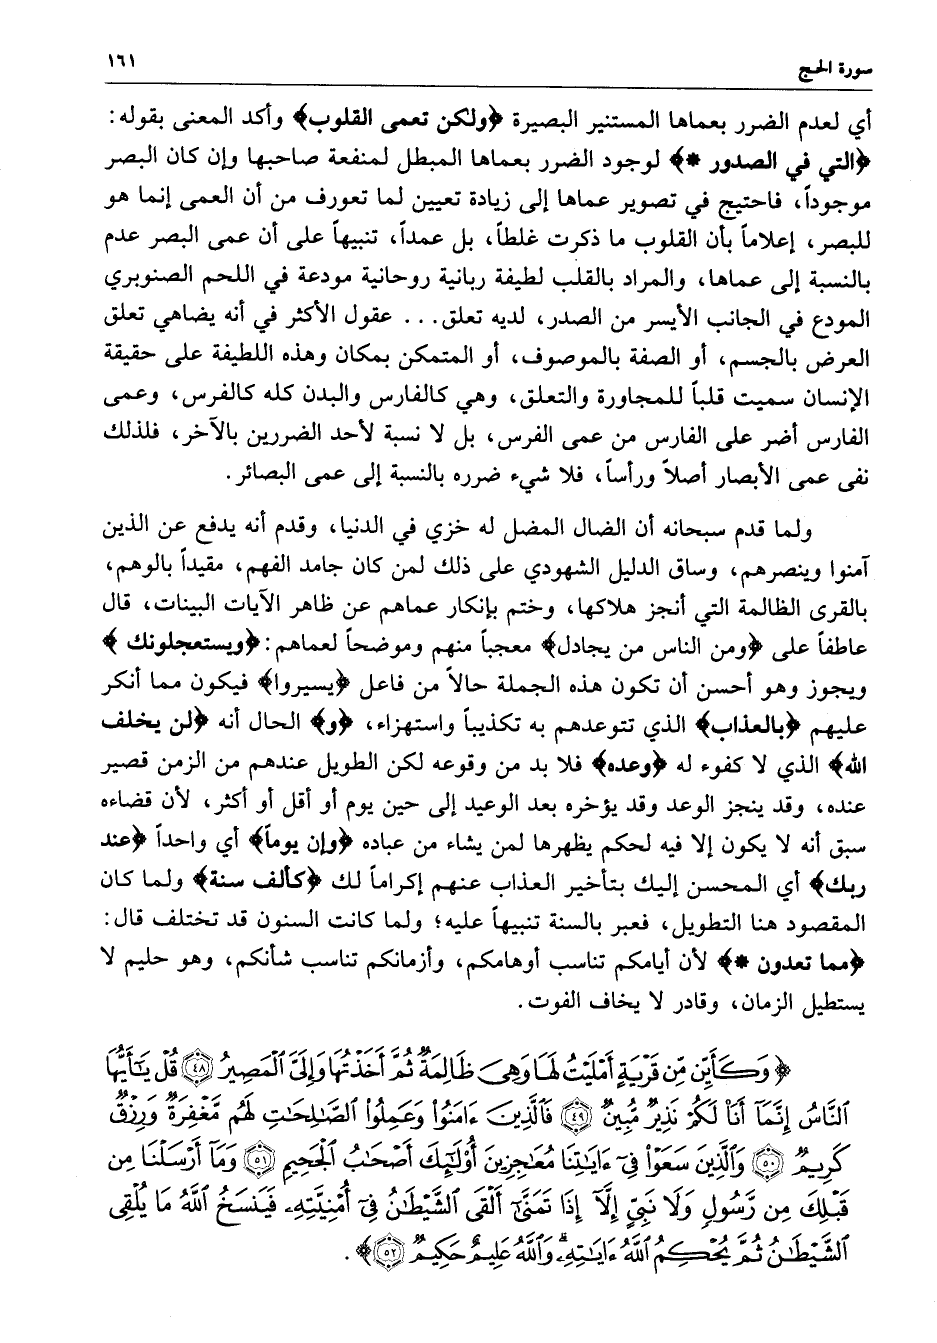 سورة الحج
١٦١
أي لعدم الضرر بعماها المستنير البصيرة ﴿ولكن تعمى القلوب﴾ وأكد المعنى بقوله:
﴿التي في الصدور *﴾ لوجود الضرر بعماها المبطل لمنفعة صاحبها وإن كان البصر
موجوداً، فاحتيج في تصوير عماها إلى زيادة تعيين لما تعورف من أن العمى إنما هو
للبصر، إعلاماً بأن القلوب ما ذكرت غلطاً، بل عمداً، تنبيهاً على أن عمى البصر عدم
بالنسبة إلى عماها، والمراد بالقلب لطيفة ربانية روحانية مودعة في اللحم الصنوبري
المودع في الجانب الأيسر من الصدر، لديه تعلق... عقول الأكثر في أنه يضاهي تعلق
العرض بالجسم، أو الصفة بالموصوف، أو المتمكن بمكان وهذه اللطيفة على حقيقة
الإنسان سميت قلباً للمجاورة والتعلق، وهي كالفارس والبدن كله كالفرس، وعمى
الفارس أضر على الفارس من عمى الفرس، بل لا نسبة لأحد الضررين بالآخر، فلذلك
نفى عمى الأبصار أصلاً ورأساً، فلا شيء ضرره بالنسبة إلى عمى البصائر.
ولما قدم سبحانه أن الضال المضل له خزي في الدنيا، وقدم أنه يدفع عن الذين
آمنوا وينصرهم، وساق الدليل الشهودي على ذلك لمن كان جامد الفهم، مقيداً بالوهم،
بالقرى الظالمة التي أنجز هلاكها، وختم بإنكار عماهم عن ظاهر الآيات البينات، قال
عاطفاً على ﴿ومن الناس من يجادل﴾ معجباً منهم وموضحاً لعماهم: ﴿ويستعجلونك ﴾
ويجوز وهو أحسن أن تكون هذه الجملة حالاً من فاعل ﴿يسيروا﴾ فيكون مما أنكر
عليهم ﴿بالعذاب﴾ الذي تتوعدهم به تكذيباً واستهزاء، ﴿و﴾ الحال أنه ﴿لن يخلف
الله﴾ الذي لا كفوء له ﴿وعده﴾ فلا بد من وقوعه لكن الطويل عندهم من الزمن قصير
عنده، وقد ينجز الوعد وقد يؤخره بعد الوعيد إلى حين يوم أو أقل أو أكثر، لأن قضاءه
سبق أنه لا يكون إلا فيه لحكم يظهرها لمن يشاء من عباده ﴿وإن يوماً﴾ أي واحداً ﴿عند
ربك﴾ أي المحسن إليك بتأخير العذاب عنهم إكراماً لك ﴿كألف سنة﴾ ولما كان
المقصود هنا التطويل، فعبر بالسنة تنبيهاً عليه؛ ولما كانت السنون قد تختلف قال:
﴿مما تعدون *﴾ لأن أيامكم تناسب أوهامكم، وأزمانكم تناسب شأنكم، وهو حليم لا
يستطيل الزمان، وقادر لا يخاف الفوت.
﴿وَكَأَيِّن مِّن قَرْيَةٍ أَمْلَيْتُ لَهَا وَهِىَ ظَالِمَةٌ ثُمَّ أَخَذْتُهَا وَإِلَىَّ ٱلْمَصِيرُ ٤٨ قُلْ يَٰٓأَيُّهَا
ٱلنَّاسُ إِنَّمَآ أَنَا۠ لَكُمْ نَذِيرٌ مُّبِينٌ ٤٩ فَٱلَّذِينَ ءَامَنُوا۟ وَعَمِلُوا۟ ٱلصَّٰلِحَٰتِ لَهُم مَّغْفِرَةٌ وَرِزْقٌ
كَرِيمٌ ٥٠ وَٱلَّذِينَ سَعَوْا۟ فِىٓ ءَايَٰتِنَا مُعَٰجِزِينَ أُو۟لَٰٓئِكَ أَصْحَٰبُ ٱلْجَحِيمِ ٥١ وَمَآ أَرْسَلْنَا مِن
قَبْلِكَ مِن رَّسُولٍ وَلَا نَبِىٍّ إِلَّآ إِذَا تَمَنَّىٰٓ أَلْقَى ٱلشَّيْطَٰنُ فِىٓ أُمْنِيَّتِهِۦ فَيَنسَخُ ٱللَّهُ مَا يُلْقِى
ٱلشَّيْطَٰنُ ثُمَّ يُحْكِمُ ٱللَّهُ ءَايَٰتِهِۦ ۗ وَٱللَّهُ عَلِيمٌ حَكِيمٌ ٥٢﴾.